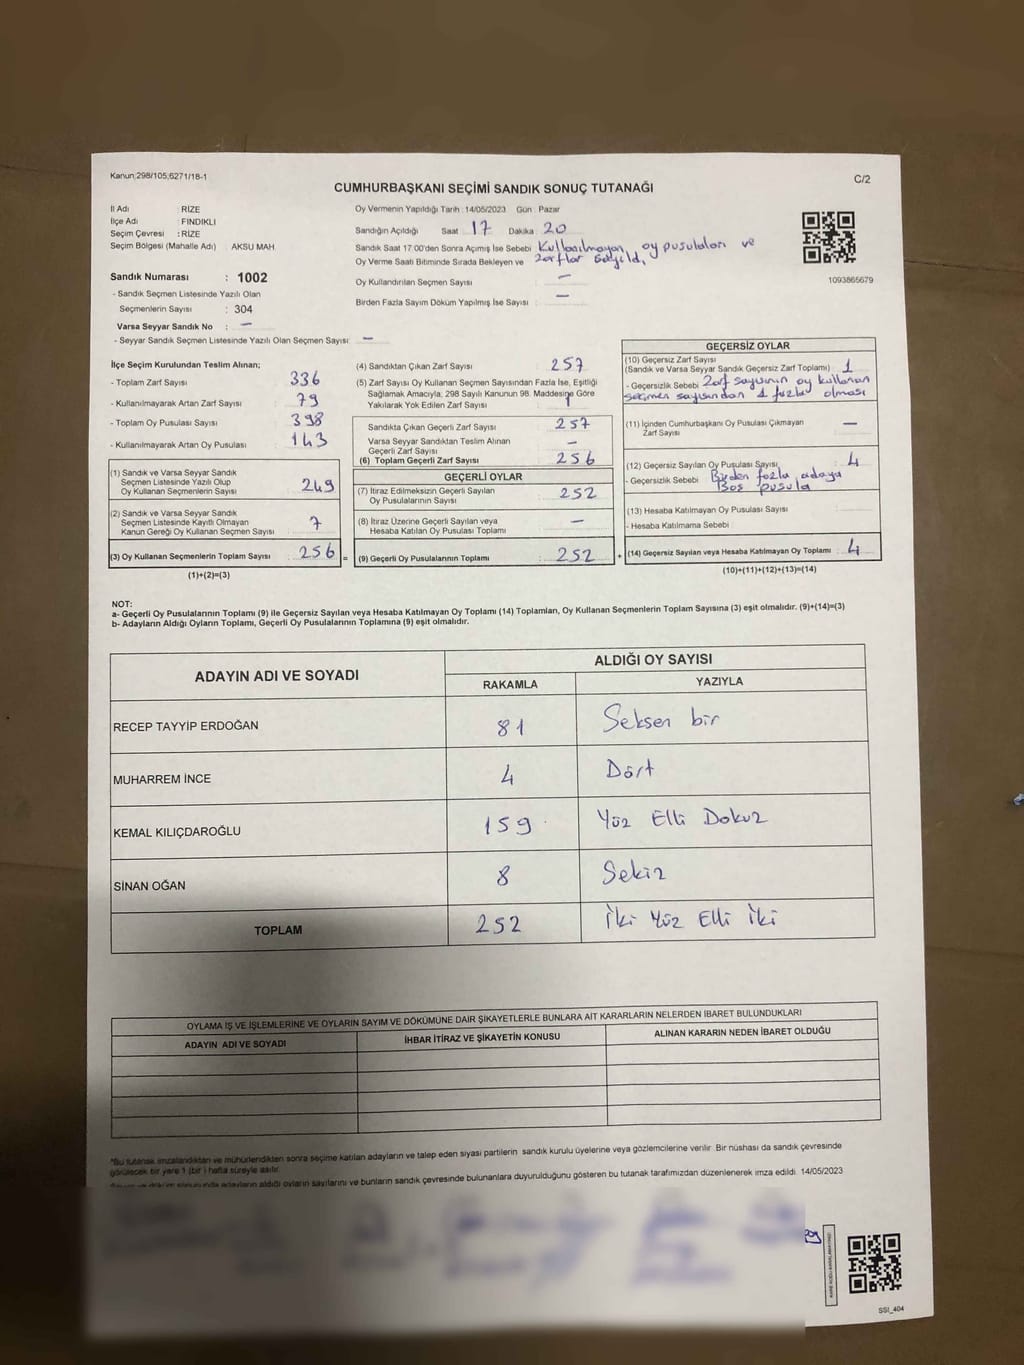 Kanun;298/105,6271/18-1
C/2
CUMHURBAŞKANI SEÇİMİ SANDIK SONUÇ TUTANAĞI
İl Adı : RİZE
İlçe Adı : FINDIKLI
Seçim Çevresi : RİZE
Seçim Bölgesi (Mahalle Adı) : AKSU MAH.
Sandık Numarası : 1002
- Sandık Seçmen Listesinde Yazılı Olan
Seçmenlerin Sayısı : 304
Varsa Seyyar Sandık No : —
- Seyyar Sandık Seçmen Listesinde Yazılı Olan Seçmen Sayısı: —
Oy Vermenin Yapıldığı Tarih :14/05/2023 Gün : Pazar
Sandığın Açıldığı Saat 17 Dakika 20
Sandık Saat 17.00'den Sonra Açımış İse Sebebi Kullanılmayan oy pusulaları ve
Oy Verme Saati Bitiminde Sırada Bekleyen ve zarflar sayıldı.
Oy Kullandırılan Seçmen Sayısı : —
Birden Fazla Sayım Döküm Yapılmış İse Sayısı : —
1093865679
İlçe Seçim Kurulundan Teslim Alınan;
- Toplam Zarf Sayısı : 336
- Kullanılmayarak Artan Zarf Sayısı : 79
- Toplam Oy Pusulası Sayısı : 398
- Kullanılmayarak Artan Oy Pusulası : 143
(1) Sandık ve Varsa Seyyar Sandık
Seçmen Listesinde Yazılı Olup
Oy Kullanan Seçmenlerin Sayısı : 249
(2) Sandık ve Varsa Seyyar Sandık
Seçmen Listesinde Kayıtlı Olmayan
Kanun Gereği Oy Kullanan Seçmen Sayısı : 7
(3) Oy Kullanan Seçmenlerin Toplam Sayısı : 256 =
(1)+(2)=(3)
(4) Sandıktan Çıkan Zarf Sayısı : 257
(5) Zarf Sayısı Oy Kullanan Seçmen Sayısından Fazla İse, Eşitliği
Sağlamak Amacıyla; 298 Sayılı Kanunun 98. Maddesine Göre
Yakılarak Yok Edilen Zarf Sayısı : 1
Sandıkta Çıkan Geçerli Zarf Sayısı : 257
Varsa Seyyar Sandıktan Teslim Alınan
Geçerli Zarf Sayısı : —
(6) Toplam Geçerli Zarf Sayısı : 256
GEÇERLİ OYLAR
(7) İtiraz Edilmeksizin Geçerli Sayılan
Oy Pusulalarının Sayısı : 252
(8) İtiraz Üzerine Geçerli Sayılan veya
Hesaba Katılan Oy Pusulası Toplamı : —
(9) Geçerli Oy Pusulalarının Toplamı : 252 +
GEÇERSİZ OYLAR
(10) Geçersiz Zarf Sayısı
(Sandık ve Varsa Seyyar Sandık Geçersiz Zarf Toplamı) : 1
- Geçersizlik Sebebi Zarf sayısının oy kullanan
seçmen sayısından 1 fazla olması
(11) İçinden Cumhurbaşkanı Oy Pusulası Çıkmayan
Zarf Sayısı : —
(12) Geçersiz Sayılan Oy Pusulası Sayısı : 4
- Geçersizlik Sebebi Birden fazla adaya
Boş pusula
(13) Hesaba Katılmayan Oy Pusulası Sayısı :
- Hesaba Katılmama Sebebi
(14) Geçersiz Sayılan veya Hesaba Katılmayan Oy Toplamı : 4
(10)+(11)+(12)+(13)=(14)
NOT:
a- Geçerli Oy Pusulalarının Toplamı (9) ile Geçersiz Sayılan veya Hesaba Katılmayan Oy Toplamı (14) Toplamları, Oy Kullanan Seçmenlerin Toplam Sayısına (3) eşit olmalıdır. (9)+(14)=(3)
b- Adayların Aldığı Oyların Toplamı, Geçerli Oy Pusulalarının Toplamına (9) eşit olmalıdır.
ADAYIN ADI VE SOYADI
ALDIĞI OY SAYISI
RAKAMLA YAZIYLA
RECEP TAYYİP ERDOĞAN 81 Seksen bir
MUHARREM İNCE 4 Dört
KEMAL KILIÇDAROĞLU 159 Yüz Elli Dokuz
SİNAN OĞAN 8 Sekiz
TOPLAM 252 İki Yüz Elli İki
OYLAMA İŞ VE İŞLEMLERİNE VE OYLARIN SAYIM VE DÖKÜMÜNE DAİR ŞİKAYETLERLE BUNLARA AİT KARARLARIN NELERDEN İBARET BULUNDUKLARI
ADAYIN ADI VE SOYADI İHBAR İTİRAZ VE ŞİKAYETİN KONUSU ALINAN KARARIN NEDEN İBARET OLDUĞU
*Bu tutanak imzalandıktan ve mühürlendikten sonra seçime katılan adayların ve talep eden siyasi partilerin sandık kurulu üyelerine veya gözlemcilerine verilir. Bir nüshası da sandık çevresinde
görülecek bir yere 1 (bir ) hafta süreyle asılır.
adayların aldığı oyların sayılarını ve bunların sandık çevresinde bulunanlara duyurulduğunu gösteren bu tutanak tarafımızdan düzenlenerek imza edildi. 14/05/2023
SSI_404